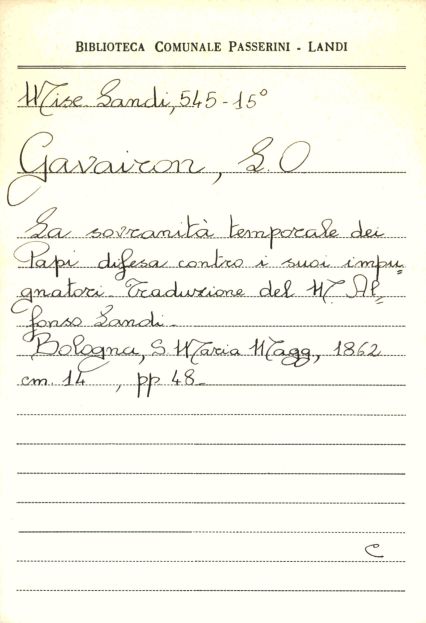 BIBLIOTECA COMUNALE PASSERINI - LANDI
Misc. Landi, 545 - 15°
Gavairon, L. O
La sovranità temporale dei
Papi difesa contro i suoi impu=
gnatori. Traduzione del M. Al=
fonso Landi.
Bologna, S. Maria Magg., 1862
cm. 14 , pp 48.
C